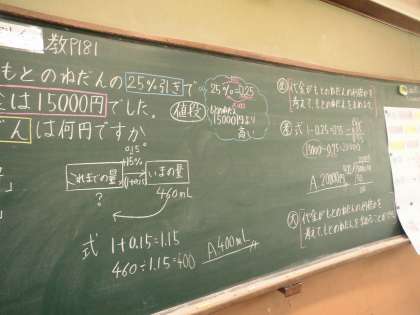 教P181
もとのねだんの 25%引きで
は15000円でした。
だんは何円ですか
値段
25%=0.25
もとのねだん
15000円より
高い
0.15
15%
これまでの量
いまの量
?
460mL
式 1+0.15=1.15
460÷1.15=400
A 400mL
代金がもとのねだんの何倍かを
考えて、もとのねだんを求める。
式 1-0.25=0.75
15000÷0.75=20000
A 20000円
代金がもとのねだんの何倍かを
考えて、もとのねだんを求めることができた